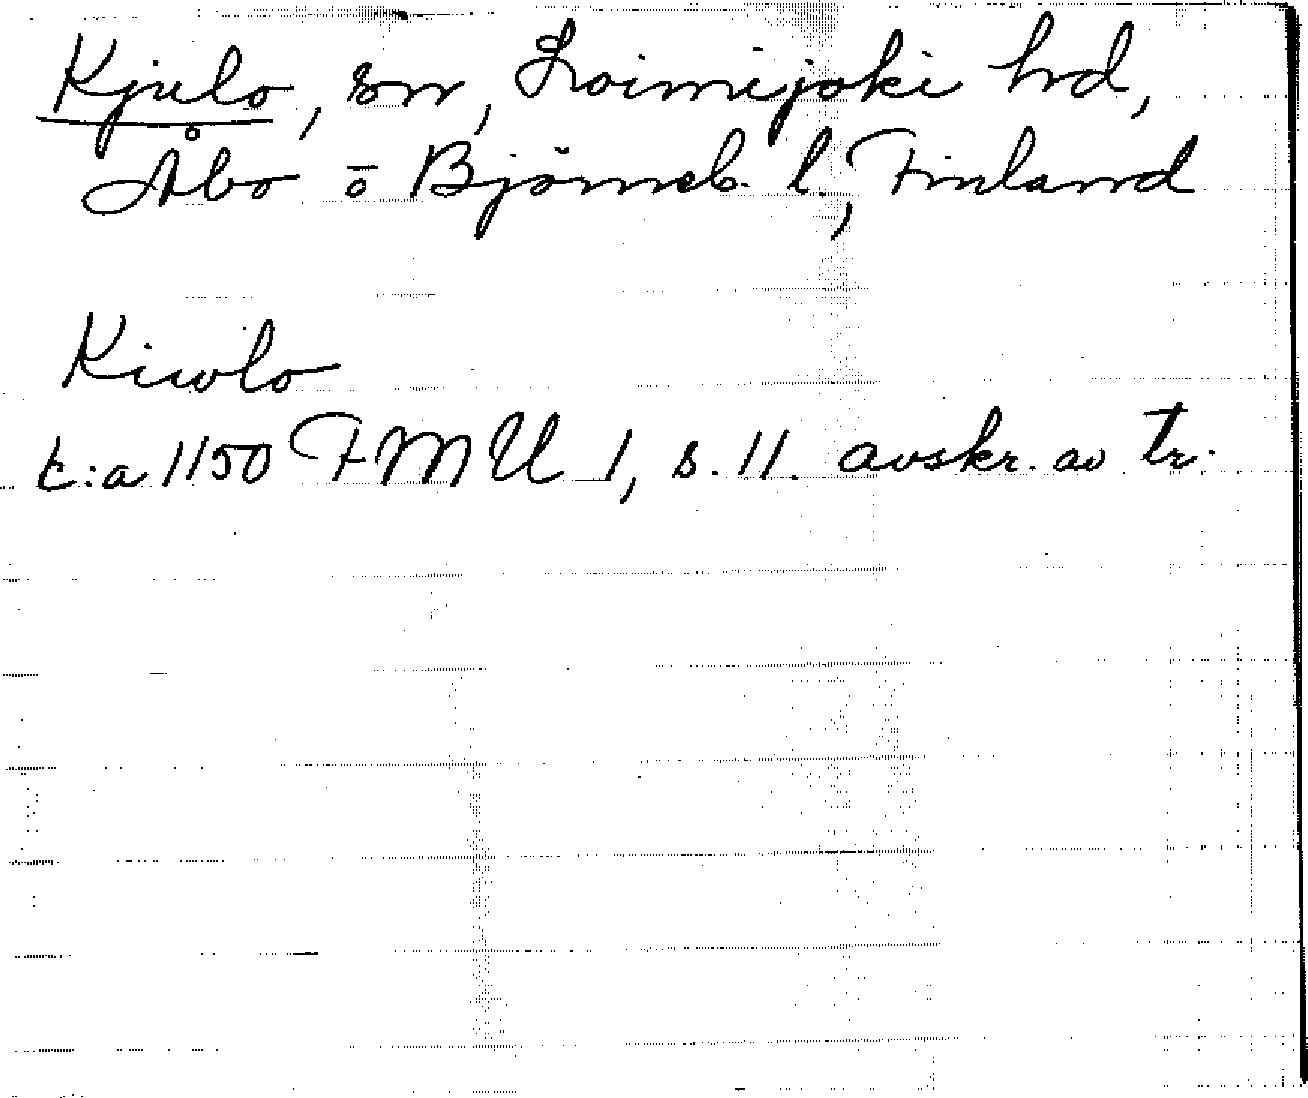 Kjulo, sn, Loimijoki hd,
Åbo o Björneb. l., Finland
Kiwlo
t.:a 1150 FMU 1, s. 11. avskr. av tr.